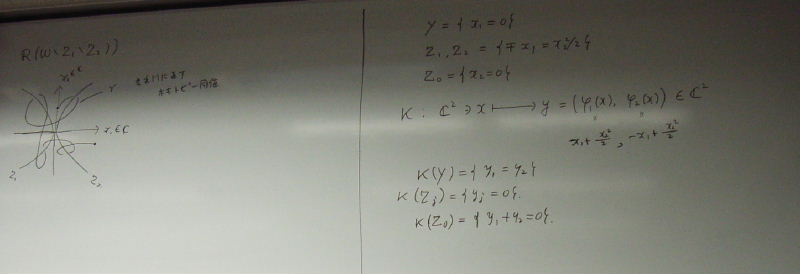 R(W\Z₁\Z₂))
x₂∈C
γ
それぞれによって
ホモトピー同値
x₁∈C
Z₁
Z₂
Y = { x₁ = 0 }
Z₁, Z₂ = { ∓ x₁ = x₂²/2 }
Z₀ = { x₂ = 0 }
K : C² ∋ x ⟼ y = (φ₁(x), φ₂(x)) ∈ C²
x₁ + x₂²/2 , -x₁ + x₂²/2
K(Y) = { y₁ = y₂ }
K(Zⱼ) = { yⱼ = 0 }.
K(Z₀) = { y₁ + y₂ = 0 }.